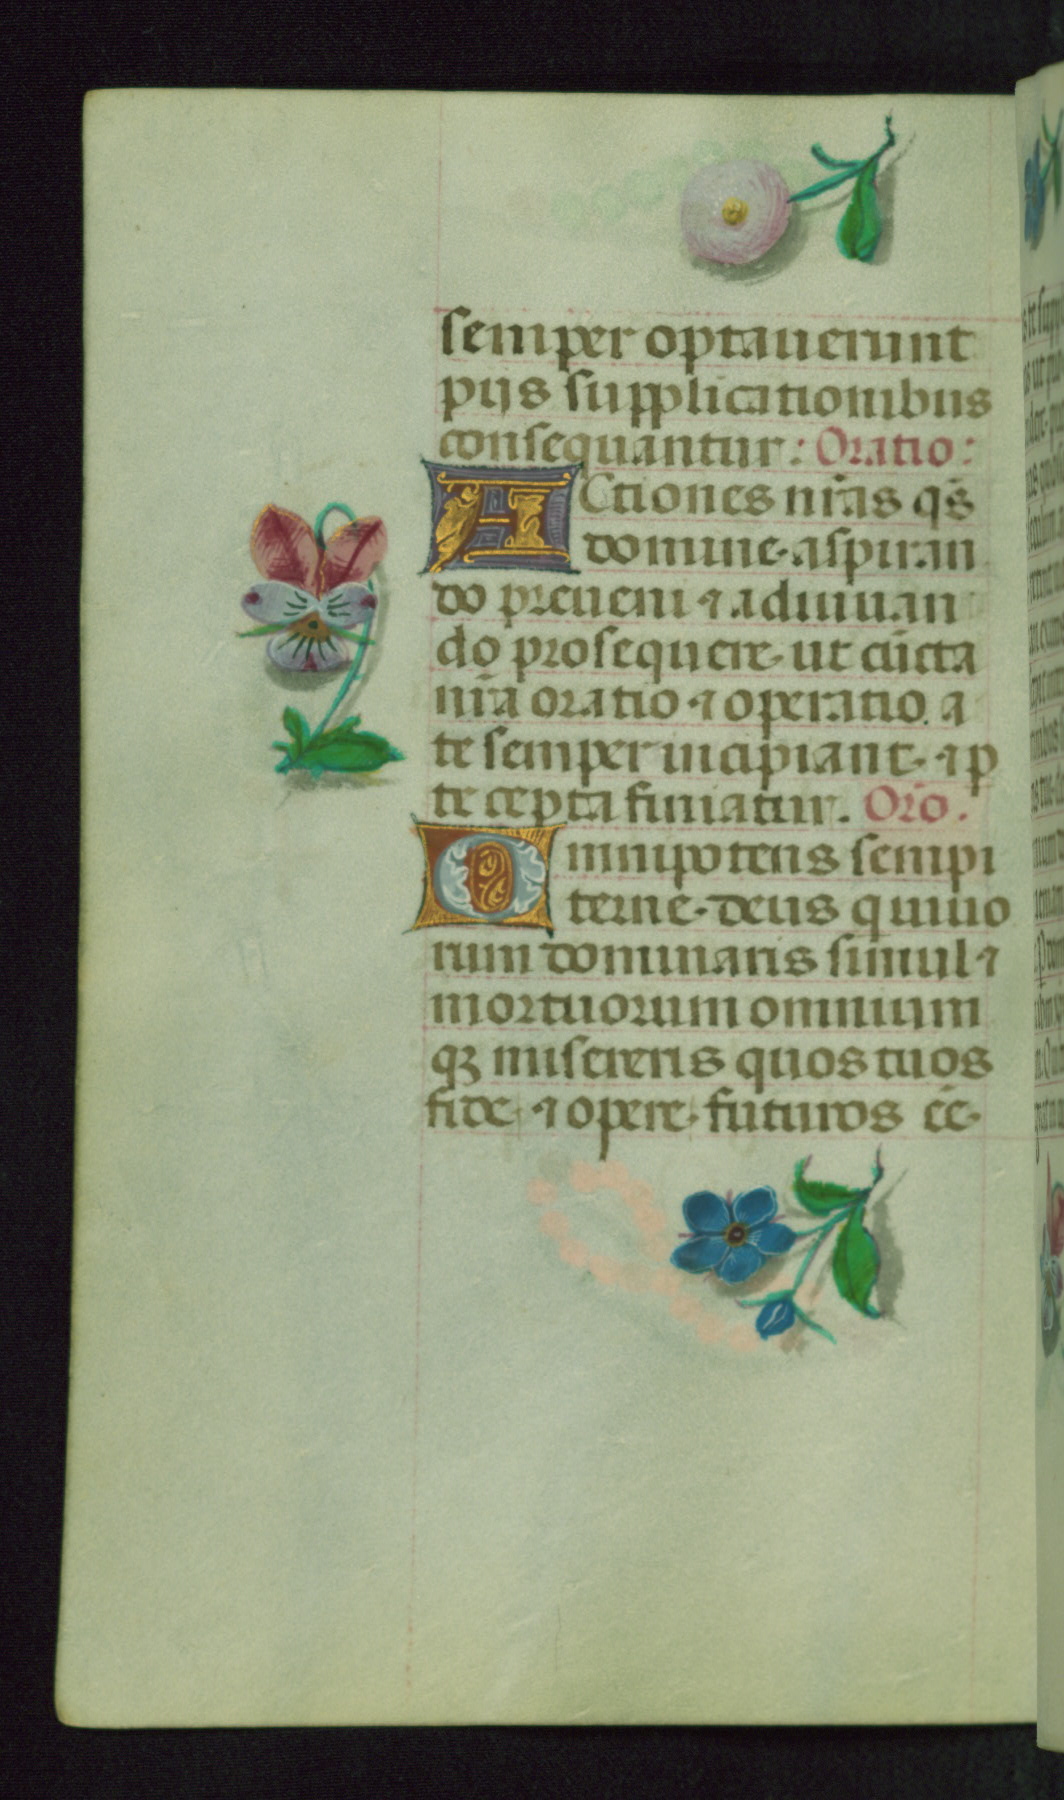 semper optauerunt
pijs supplicationibus
consequantur: Oratio:
ACtiones nr̄as qs̄
domine. aspiran
do preueni ⁊ adiuuan
do prosequere. ut cūcta
nr̄a oratio ⁊ operatio. a
te semper incipiant. ⁊ p
te cepta finiatur. Orō.
Omnipotens sempi
terne. deus qui uiuo
rum dominaris simul ⁊
mortuorum omnium
qꝫ misereris quos tuos
fide. ⁊ opere. futuros eē.